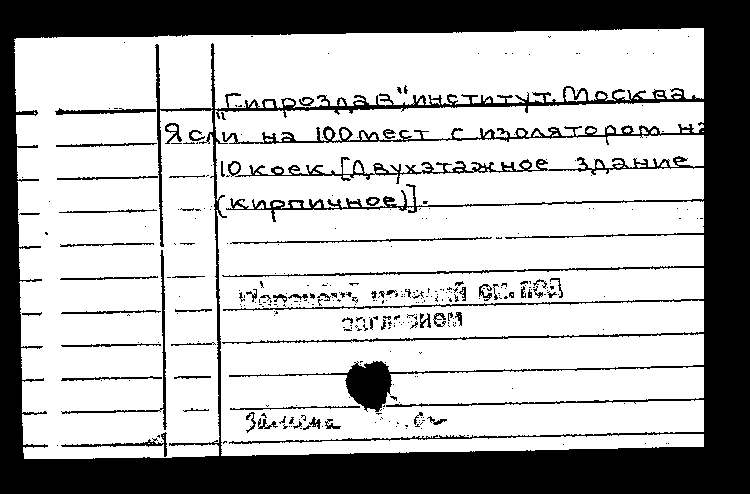 "Гипроздрав", институт. Москва.
Ясли на 100 мест с изолятором на
10 коек. [Двухэтажное здание
(кирпичное)].
см. под
заглавием
Замена